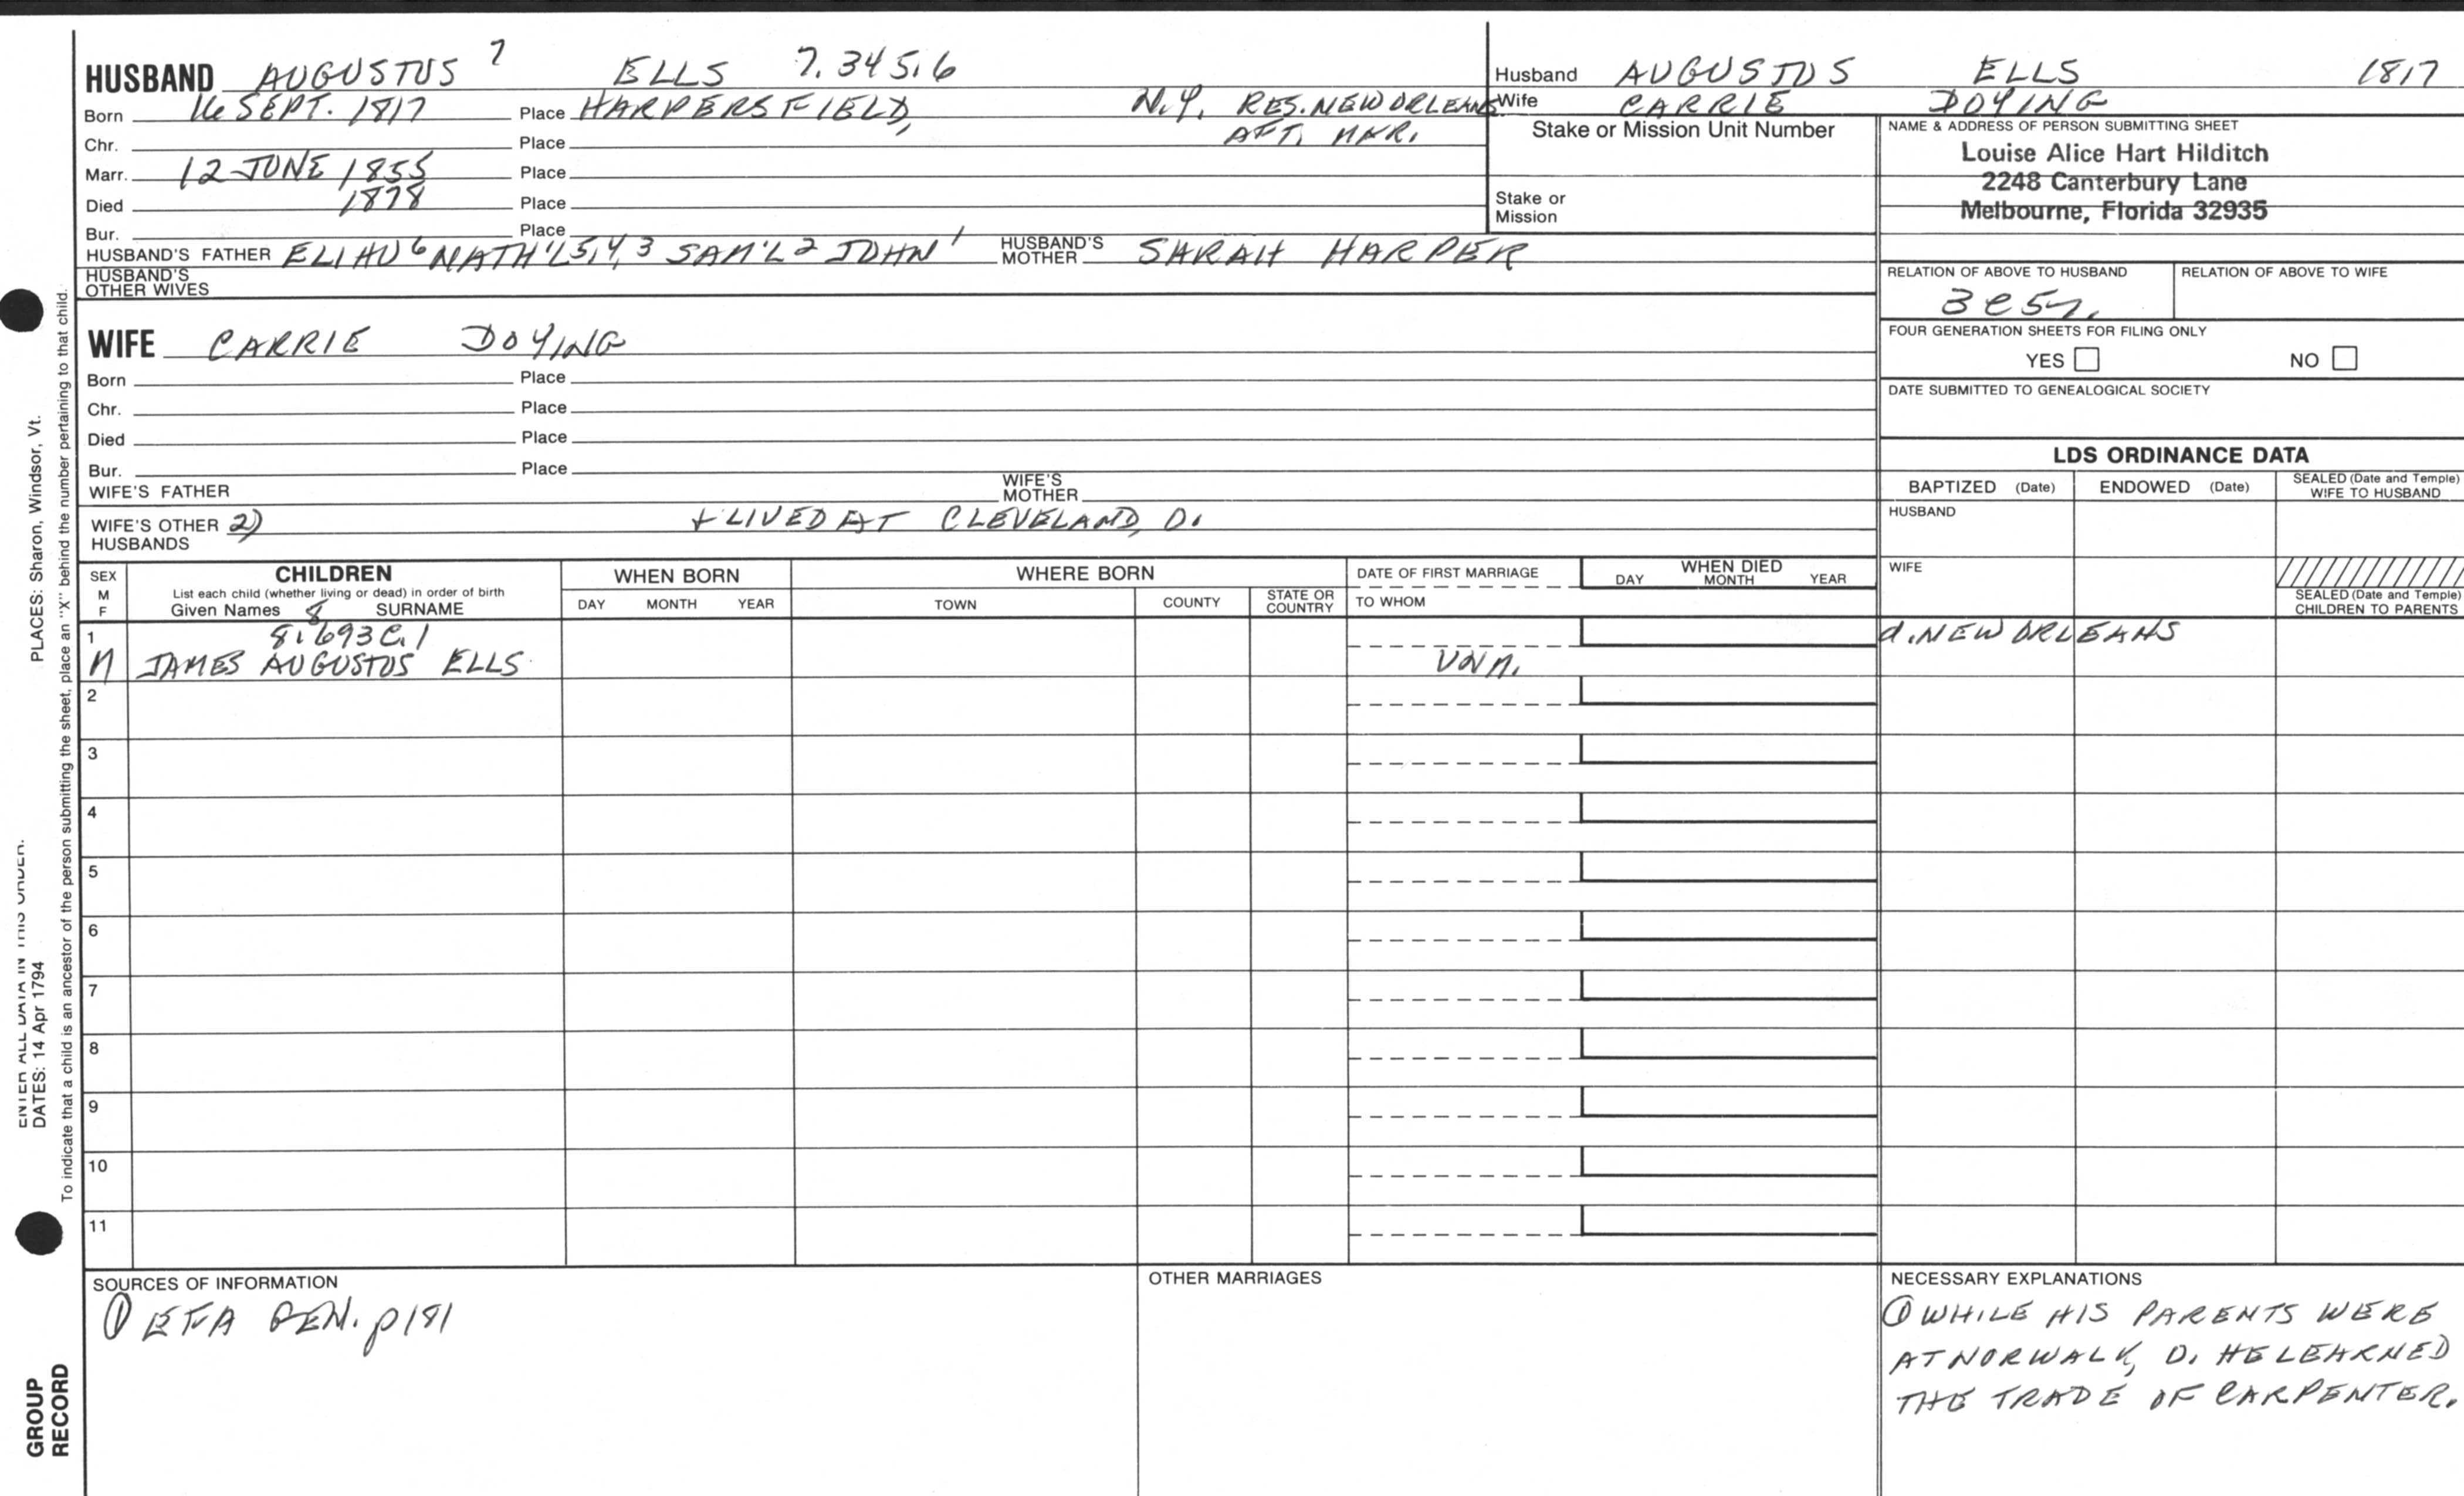 HUSBAND AUGUSTUS 7 ELLS 7.345.6
Born 16 SEPT. 1817 Place HARPERSFIELD, N.Y. RES. NEW ORLEANS
Chr. Place AFT. MAR.
Marr. 12 JUNE 1855 Place
Died 1878 Place
Bur. Place
HUSBAND'S FATHER ELIHU 6 NATH'L 5,4,3 SAM'L 2 JOHN 1 HUSBAND'S MOTHER SARAH HARPER
HUSBAND'S OTHER WIVES
WIFE CARRIE DOYING
Born Place
Chr. Place
Died Place
Bur. Place
WIFE'S FATHER WIFE'S MOTHER
WIFE'S OTHER HUSBANDS 2) + LIVED AT CLEVELAND, O.
Husband AUGUSTUS ELLS 1817
Wife CARRIE DOYING
Stake or Mission Unit Number
Stake or
Mission
NAME & ADDRESS OF PERSON SUBMITTING SHEET
Louise Alice Hart Hilditch
2248 Canterbury Lane
Melbourne, Florida 32935
RELATION OF ABOVE TO HUSBAND RELATION OF ABOVE TO WIFE
3C5
FOUR GENERATION SHEETS FOR FILING ONLY
YES NO
DATE SUBMITTED TO GENEALOGICAL SOCIETY
LDS ORDINANCE DATA
BAPTIZED (Date) ENDOWED (Date) SEALED (Date and Temple) WIFE TO HUSBAND
HUSBAND
WIFE
SEALED (Date and Temple) CHILDREN TO PARENTS
SEX M F
CHILDREN
List each child (whether living or dead) in order of birth
Given Names 8 SURNAME
WHEN BORN
DAY MONTH YEAR
WHERE BORN
TOWN COUNTY STATE OR COUNTRY
DATE OF FIRST MARRIAGE
TO WHOM
WHEN DIED
DAY MONTH YEAR
1 8.693C.1 d. NEW ORLEANS
M JAMES AUGUSTUS ELLS UNM.
2
3
4
5
6
7
8
9
10
11
SOURCES OF INFORMATION
① EFA GEN. p181
OTHER MARRIAGES
NECESSARY EXPLANATIONS
① WHILE HIS PARENTS WERE
AT NORWALK, O. HE LEARNED
THE TRADE OF CARPENTER.
ENTER ALL DATA IN THIS ORDER:
DATES: 14 Apr 1794 PLACES: Sharon, Windsor, Vt.
To indicate that a child is an ancestor of the person submitting the sheet, place an "X" behind the number pertaining to that child.
GROUP
RECORD